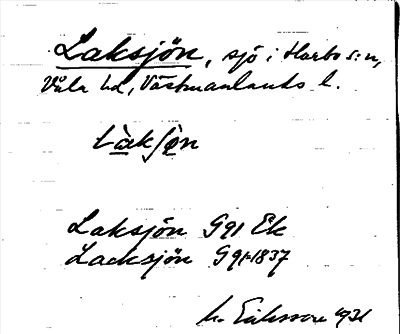 Laksjön, sjö i Harbo s:n,
Våla hd, Västmanlands l.
làkſǫn
Laksjön G91 Ek
Lacksjön G91-1837
M. Eriksson 1931